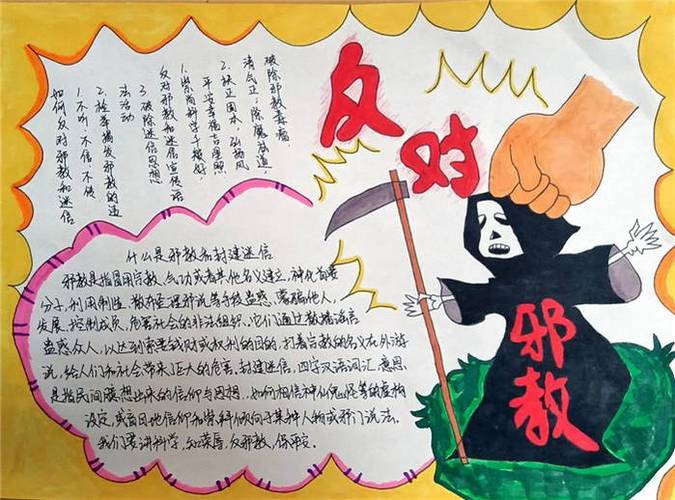 反对
如何反对邪教和迷信
1.不听·不信·不传
2.检举揭发邪教的违
法活动
3.破除迷信思想
反对邪教和迷信宣传语
1.崇尚科学千般好,
平安幸福吉星照
2.扶正固本 弘扬风
清气正;除魔祛道,
破除邪教毒瘤
什么是邪教和封建迷信
邪教是指冒用宗教、气功或者其他名义建立,神化首要
分子,利用制造、散布歪理邪说等手段蛊惑、蒙骗他人,
发展、控制成员,危害社会的非法组织。它们通过散播谣言
蛊惑众人,以达到索要钱财或权利的目的,打着宗教的名义在外游
说,给人们和社会带来了巨大的危害。封建迷信,四字汉语词汇,意思
是指民间臆想出来的信仰与思想,如何相信神仙鬼怪等的虚构
设定,或盲目地信仰和崇拜倾向于某种人物或邪门说法。
我们要讲科学,知荣辱,反邪教,保平安.
邪教